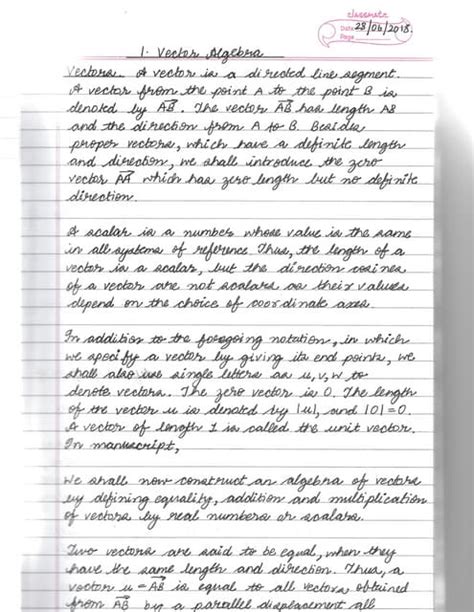 classmate
Date 28/06/2018.
Page
1. Vector Algebra
Vectors. A vector is a directed line segment.
A vector from the point A to the point B is
denoted by AB. The vector AB has length AB
and the direction from A to B. Besides
proper vectors, which have a definite length
and direction, we shall introduce the zero
vector AA which has zero length but no definite
direction.
A scalar is a number whose value is the same
in all systems of reference. Thus, the length of a
vector is a scalar, but the direction cosines
of a vector are not scalars as their values
depend on the choice of coordinate axes.
In addition to the foregoing notation, in which
we specify a vector by giving its end points, we
shall also use single letters as u, v, w to
denote vectors. The zero vector is 0. The length
of the vector u is denoted by |u|, and |0| = 0.
A vector of length 1 is called the unit vector.
In manuscript,
We shall now construct an algebra of vectors
by defining equality, addition and multiplication
of vectors by real numbers or scalars.
Two vectors are said to be equal, when they
have the same length and direction. Thus, a
vector u = AB is equal to all vectors obtained
from AB by a parallel displacement all